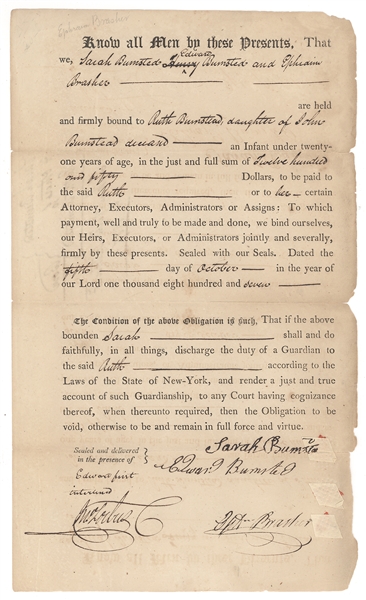 Ephraim Brasher
Know all Men by these Presents, That
we, Sarah Bumsted Henry Edward Bumsted and Ephraim
Brasher
are held
and firmly bound to Ruth Bumstead, daughter of John
Bumstead deceased an Infant under twenty-
one years of age, in the just and full sum of Twelve hundred
and fifty Dollars, to be paid to
the said Ruth or to her certain
Attorney, Executors, Administrators or Assigns: To which
payment, well and truly to be made and done, we bind ourselves,
our Heirs, Executors, or Administrators jointly and severally,
firmly by these presents. Sealed with our Seals. Dated the
fifth day of October in the year of
our Lord one thousand eight hundred and seven
The Condition of the above Obligation is such, That if the above
bounden Sarah shall and do
faithfully, in all things, discharge the duty of a Guardian to
the said Ruth according to the
Laws of the State of New-York, and render a just and true
account of such Guardianship, to any Court having cognizance
thereof, when thereunto required, then the Obligation to be
void, otherwise to be and remain in full force and virtue.
Sealed and delivered
in the presence of
Edward first
Sarah Bumsted
Edward Bumsted
Ephm Brasher